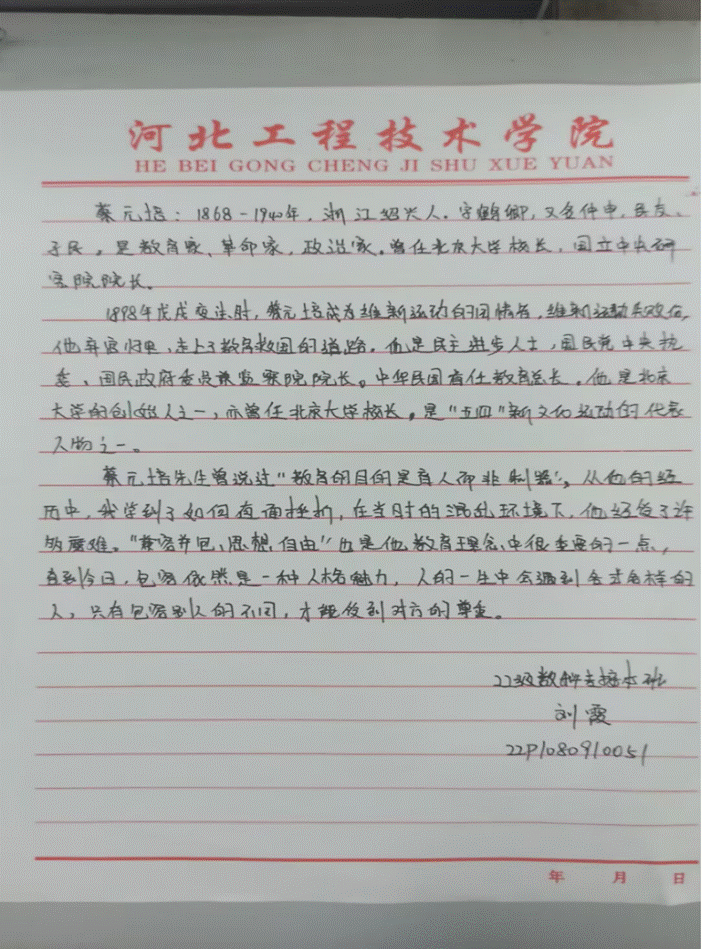 河北工程技术学院
HE BEI GONG CHENG JI SHU XUE YUAN
蔡元培：1868-1940年，浙江绍兴人。字鹤卿，又名仲申，民友、
孑民，是教育家、革命家，政治家。曾任北京大学校长，国立中央研
究院院长。
1898年戊戌变法时，蔡元培成为维新运动的同情者，维新运动失败后，
他弃官归里，走上了教育救国的道路。他是民主进步人士，国民党中央执
委、国民政府委员兼监察院院长。中华民国首任教育总长。他是北京
大学的创始人之一，亦曾任北京大学校长。是"五四"新文化运动的代表
人物之一。
蔡元培先生曾说过"教育的目的是育人而非制器"，从他的经
历中，我学到了如何直面挫折，在当时的混乱环境下，他经受了许
多磨难。"兼容并包，思想自由"也是他教育理念中很重要的一点，
直到今日，包容依然是一种人格魅力，人的一生中会遇到各式各样的
人，只有包容别人的不同，才能收到对方的尊重。
22级数科专接本班
刘霞
22P1080910051
年 月 日